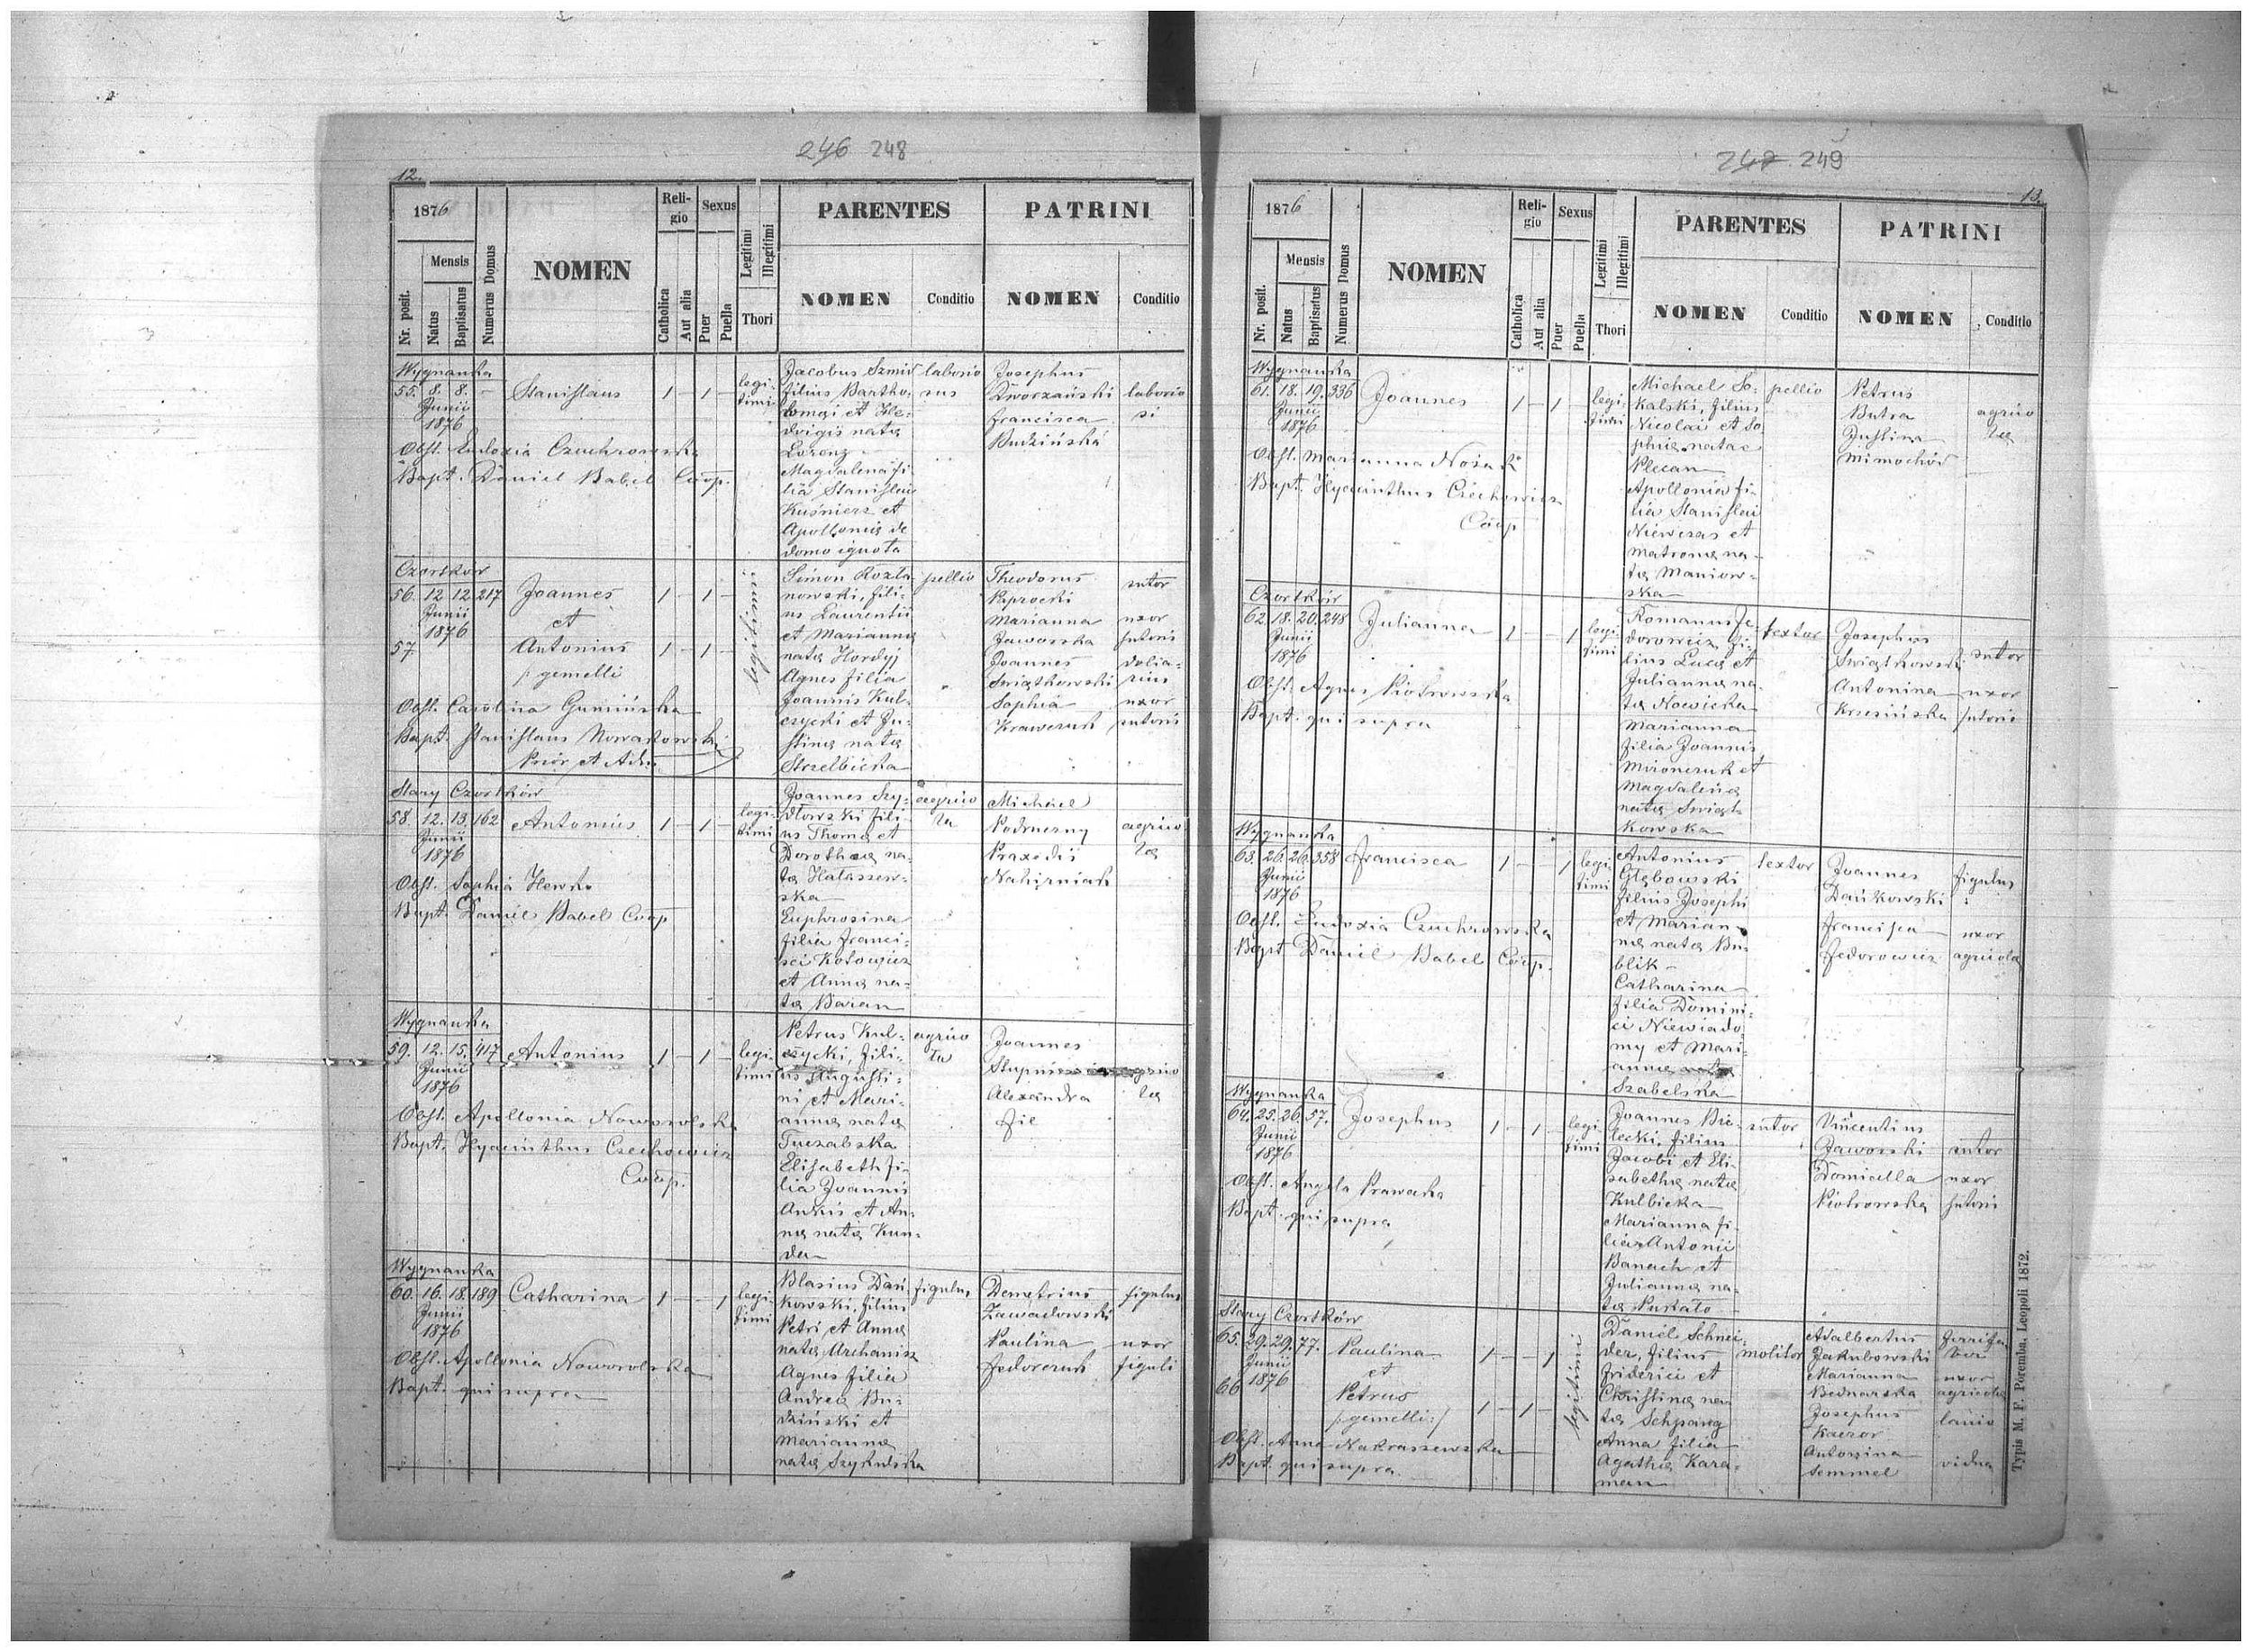 246 248
12.
1876
Reli-
gio
Sexus
Legitimi
Illegitimi
PARENTES
PATRINI
Nr. posit.
Mensis
Natus
Baptisatus
Numerus Domus
NOMEN
Catholica
Aut alia
Puer
Puella
Thori
NOMEN
Conditio
NOMEN
Conditio
Wygnanka
55. 8. 8. – Stanislaus 1 – 1 –
Junii
1876
legi-
timi
Jacobus Szmid
filius Bartho-
lomei et He-
dvigis nata
Lorenz
Magdalena fi-
lia Stanislai
Kuśnierz et
Apollonia de
domo ignota
laborio
sus
Josephus
Dworzański
Francisca
Budzińska
laborio
si
Obst. Eudoxia Czuchrowska
Bapt. Daniel Babel Coop.
Czortkow
56. 12 12 217 Joannes 1 – 1 –
Junii
1876
et
57 Antonius 1 – 1 –
gemelli
legitimi
Simon Kozła-
nowski, fili-
us Laurentii
et Marianna
nata Hordyj
Agnes filia
Joannis Kul-
czycki et Ju-
stina nata
Strzelbicka
pellio
Theodorus
Paprocki
Marianna
Jaworska
Joannes
Swiątkowski
Sophia
Krawczuk
sutor
uxor
sutoris
dolia-
rius
uxor
sutoris
Obst. Carolina Gumińska
Bapt. Stanislaus Nowakowski
Prior et Adm.
Stary Czortków
58. 12. 13. 162 Antonius 1 – 1 –
Junii
1876
legi-
timi
Joannes Szy-
dłowski fili-
us Thoma et
Dorothea na-
ta Hałaszew-
ska
Euphrosina
filia Franci-
sci Kotowicz
et Anna na-
ta Baran
agrico
la
Michael
Podruczny
Praxedis
Nahirniak
agrico
la
Obst. Sophia Hewko
Bapt. Daniel Babel Coop
Wygnanka
59. 12. 15. 417 Antonius 1 – 1 –
Junii
1876
legi-
timi
Petrus Kul-
czycki, fili-
us Augusti-
ni et Mari-
anna nata
Tuczabska
Elisabeth fi-
lia Joannis
Ankis et An-
na nata Kun-
da
agrico
la
Joannes
Alexandra
Fic
la
Obst. Apollonia Noworolska
Bapt. Hyacinthus Czechowicz
Coop.
Wygnanka
60. 16. 18. 189 Catharina 1 – – 1
Junii
1876
legi-
timi
Blasius Dań-
kowski, filius
Petri et Anna
nata Archanisz
Agnes filia
Andrea Bu-
dziński et
Marianna
nata Szykulska
figulus
Demetrius
Zawadowski
Paulina
Fedorczuk
figulus
uxor
figuli
Obst. Apollonia Noworolska
Bapt. qui supra
247 249
13.
1876
Reli-
gio
Sexus
Legitimi
Illegitimi
PARENTES
PATRINI
Nr. posit.
Mensis
Natus
Baptisatus
Numerus Domus
NOMEN
Catholica
Aut alia
Puer
Puella
Thori
NOMEN
Conditio
NOMEN
Conditio
Wygnanka
61. 18. 19. 336 Joannes 1 – 1 –
Junii
1876
legi-
timi
Michael So-
kalski, filius
Nicolai et So-
phia natae
Plecan
Apollonia fi-
lia Stanislai
Niewczas et
Matrona na-
ta Maniow-
ska
pellio
Petrus
Butra
Justina
Mimochód
agrico
la
Obst. Marianna Nosak
Bapt. Hyacinthus Czechowicz
Coop
Czortków
62. 18. 20. 248 Julianna 1 – – 1
Junii
1876
legi-
timi
Romanus Fe-
dorowicz fi-
lius Luca et
Julianna na-
ta Nowicka
Marianna
filia Joannis
Mironczuk et
Magdalena
nata Swiąt-
kowska
textor
Josephus
Swiątkowski
Antonina
Krzesińska
sutor
uxor
sutoris
Obst. Agnes Piotrowska
Bapt. qui supra
Wygnanka
63. 26. 26. 358 Francisca 1 – – 1
Junii
1876
legi-
timi
Antonius
Głębowski
filius Josephi
et Marian-
na nata Bu-
blik
Catharina
filia Domini-
ci Niewiado
my et Mari-
anna nata
Szabelska
textor
Joannes
Dańkowski
Francisca
Fedorowicz
figulus
uxor
agricola
Obst. Eudoxia Czuchrowska
Bapt Daniel Babel Coop.
Wygnanka
64. 25. 26. 57. Josephus 1 – 1 –
Junii
1876
legi-
timi
Joannes Bie-
lecki, filius
Jacobi et Eli-
sabetha nata
Kulbicka
Marianna fi-
lia Antonii
Banach et
Julianna na-
ta Puskało
sutor
Vincentius
Jaworski
Domicella
Piotrowska
sutor
uxor
sutoris
Obst. Angela Prawecka
Bapt. qui supra
Stary Czortków
65. 29. 29. 77. Paulina 1 – – 1
Junii
1876
et
66 Petrus 1 – 1 –
gemelli
legitimi
Daniel Schnei-
der, filius
Friderici et
Christina na-
ta Schpang
Anna filia
Agatha Kara-
man
molitor
Adalbertus
Jakubowski
Marianna
Bednarska
Josephus
Kaczor
Antonina
Semmel
ferrifa
ber
uxor
agricola
lanio
vidua
Obst. Anna Nakraszewska
Bapt. qui supra.
Typis M. F. Poremba. Leopoli 1872.